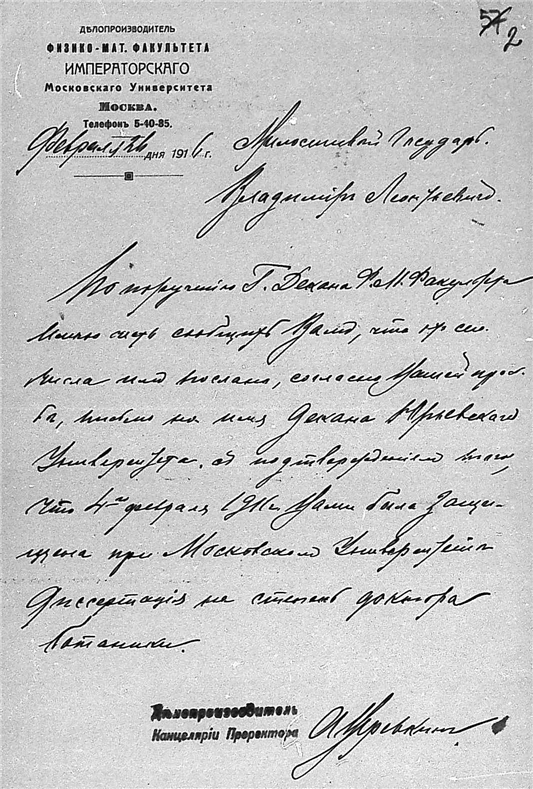 57 2
ДѢЛОПРОИЗВОДИТЕЛЬ
ФИЗИКО-МАТ. ФАКУЛЬТЕТА
ИМПЕРАТОРСКАГО
Московскаго Университета
Москва.
Телефонъ 5-40-85.
Февраля дня 191 г.
Милостивый Государь.
Владимиръ Леонтьевичъ.
По порученію Г. Декана Ф.М. Факультета
имѣю честь сообщить Вамъ, что
числа мною послано, согласно Вашей прось-
бѣ, письмо на имя Декана Юрьевскаго
Университета съ подтвержденіемъ того,
что 4го февраля 191 Вами была защи-
щена при Московскомъ Университетѣ
диссертація на степень доктора
ботаники.
Дѣлопроизводитель
Канцеляріи Проректора